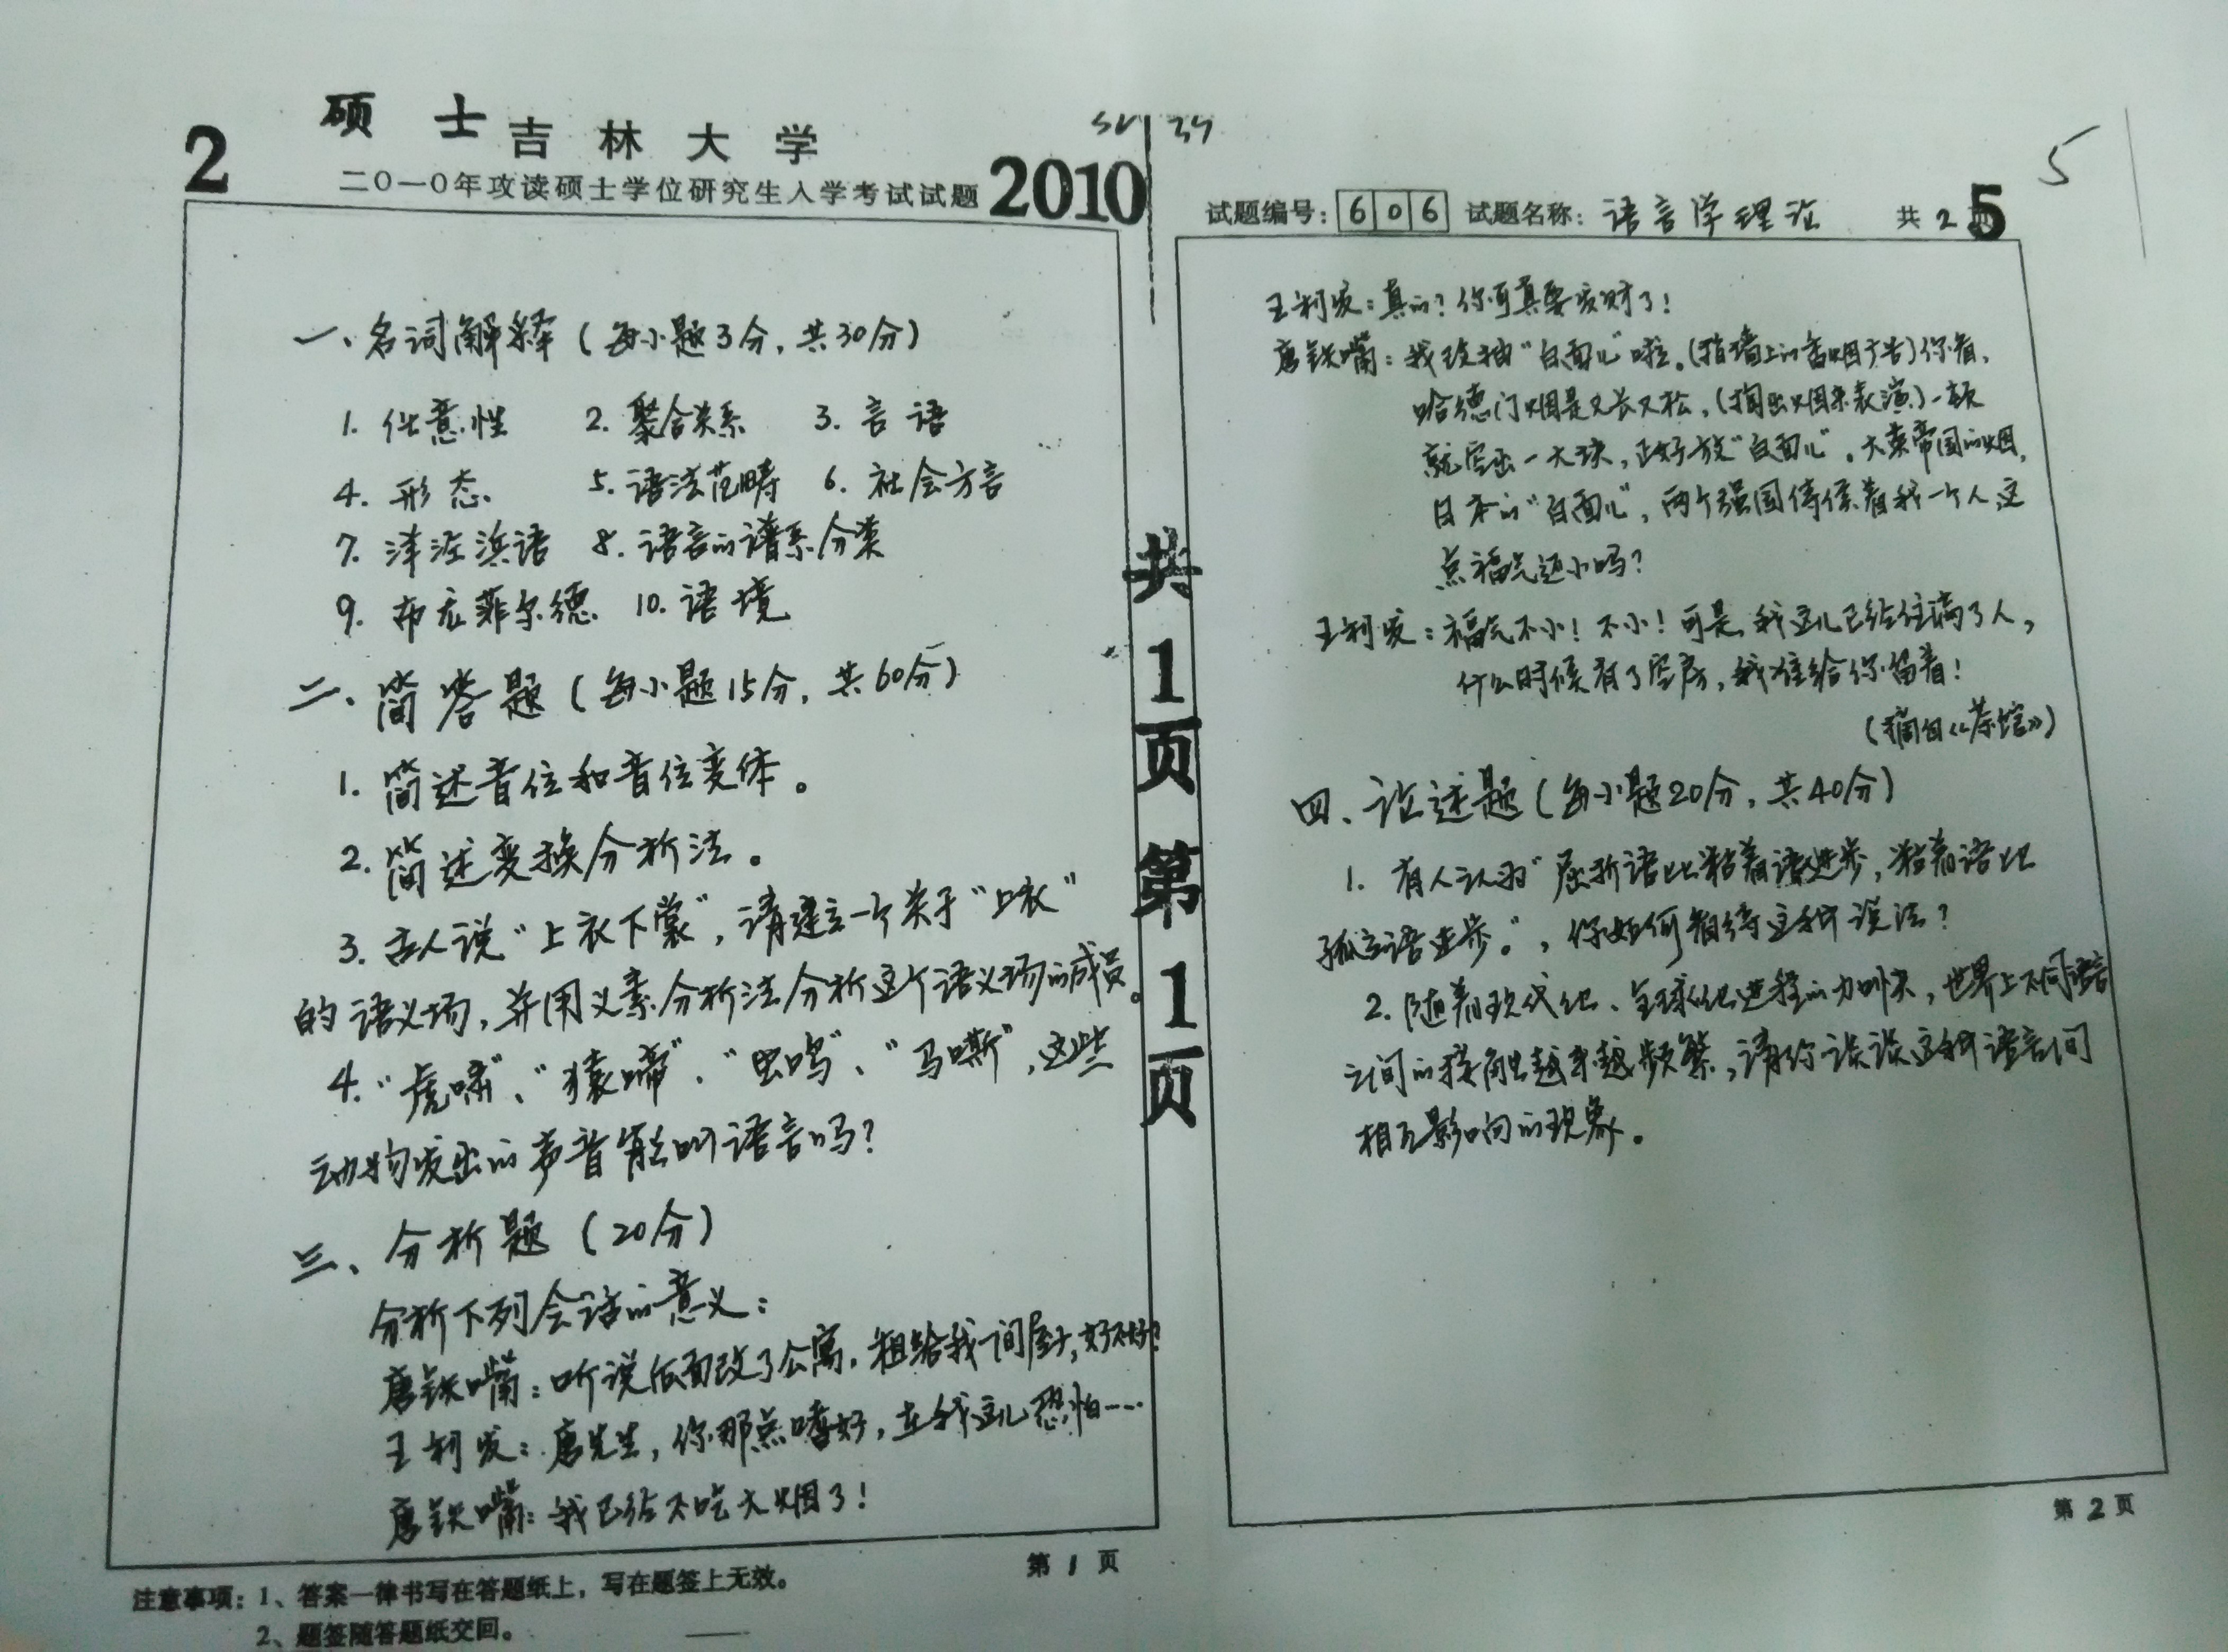 硕 士
2 吉 林 大 学
二〇一〇年攻读硕士学位研究生入学考试试题 2010
一、名词解释(每小题3分,共30分)
1. 任意性 2. 聚合关系 3. 言语
4. 形态 5. 语法范畴 6. 社会方言
7. 洋泾浜语 8. 语言的谱系分类
9. 布龙菲尔德 10. 语境
二、简答题(每小题15分,共60分)
1. 简述音位和音位变体。
2. 简述变换分析法。
3. 古人说“上衣下裳”,请建立一个关于“上衣”
的语义场,并用义素分析法分析这个语义场的成员。
4. “虎啸”、“猿啼”、“虫鸣”、“马嘶”,这些
动物发出的声音能叫语言吗?
三、分析题(20分)
分析下列会话的意义:
唐铁嘴:听说后面改了公寓,租给我一间屋子,好不好?
王利发:唐先生,你那点嗜好,在我这儿恐怕……
唐铁嘴:我已经不吃大烟了!
第 1 页
注意事项:1、答案一律书写在答题纸上,写在题签上无效。
2、题签随答题纸交回。
共1页 第1页
34
5
试题编号:606 试题名称:语言学理论 共 2 5
王利发:真的?你可真要发财了!
唐铁嘴:我改抽“白面儿”啦。(指墙上的香烟广告)你看,
哈德门烟是又长又松,(掏出烟来表演)一顿
就空出一大块,正好放“白面儿”。大英帝国的烟,
日本的“白面儿”,两个强国侍候着我一个人,这
点福气还小吗?
王利发:福气不小!不小!可是,我这儿已经住满了人,
什么时候有了空房,我准给你留着!
(摘自《茶馆》)
四、论述题(每小题20分,共40分)
1. 有人认为“屈折语比粘着语进步,粘着语比
孤立语进步。”,你如何看待这种说法?
2. 随着现代化、全球化进程的加快,世界上不同语言
之间的接触越来越频繁,请你谈谈这种语言间
相互影响的现象。
第 2 页